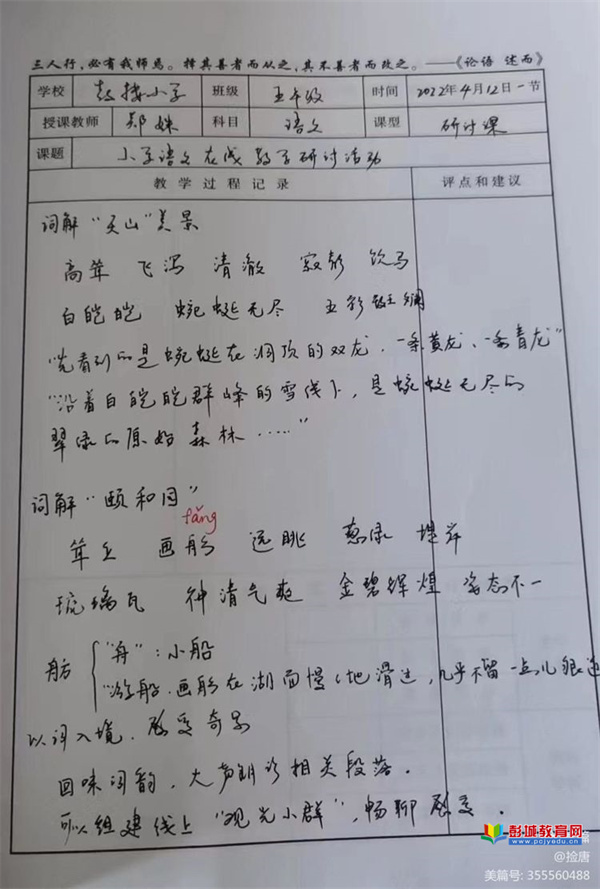 三人行，必有我师焉。择其善者而从之，其不善者而改之。——《论语 述而》
学校 鼓楼小学 班级 五年级 时间 2022年4月12日一节
授课教师 郑姝 科目 语文 课型 研讨课
课题 小学语文在线教学研讨活动
教学过程记录 评点和建议
词解“天山”美景
高耸 飞泻 清澈 寂静 饮马
白皑皑 蜿蜒无尽 五彩斑斓
“先看到的是蜿蜒在洞顶的双龙，一条黄龙、一条青龙”
“沿着白皑皑群峰的雪线下，是蜿蜒无尽的
翠绿的原始森林……”
词解“颐和园”
fǎng
耸立 画舫 远眺 葱绿 堤岸
琉璃瓦 神清气爽 金碧辉煌 姿态不一
舫 “舟”：小船
“游船、画舫在湖面慢慢地滑过，几乎不留一点儿痕迹
以词入境，感受奇景
回味词韵，大声朗诵相关段落。
可以组建线上“观光小群”，畅聊感受。
彭城教育网
www.pcjyedu.cn
@捡唐
美篇号: 355560488